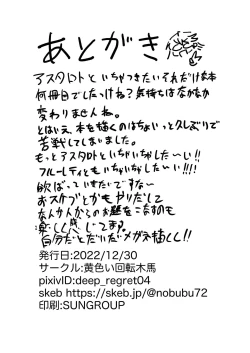 あとがき
アスタロトといちゃつきたいそれだけな本
何冊目でしたっけね？気持ちはなかなか
変わりませんね。
とはいえ、本を描くのはちょいっと久しぶりで
苦戦してしまいました。
もっとアスタロトといちゃいちゃしたーい!!
フルーレティともいちゃいちゃしたーい!!!
欲ばっていきたいですなー
おスケブとかもやりだして
なんかんかからのお題をこなすのも
楽しく感じてます。
自分だとだいたいメガネ描く!!
発行日:2022/12/30
サークル:黄色い回転木馬
pixivID:deep_regret04
skeb https://skeb.jp/@nobubu72
印刷:SUNGROUP